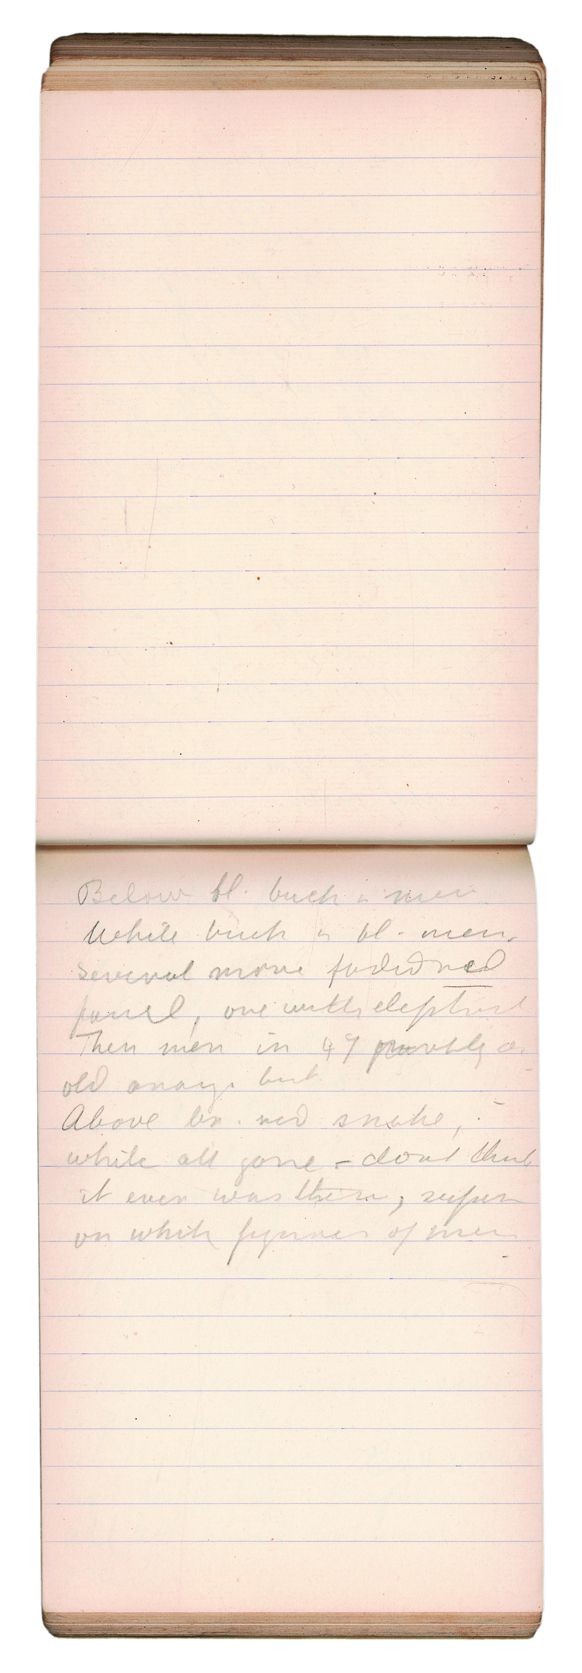 Below bl. buck & men
White buck & bl. men.
Several more faded red
one with elephant
Then men in 47 possibly
old but
Above br. red snake,
while all gone - dont think
it ever was there,
on white figures of men